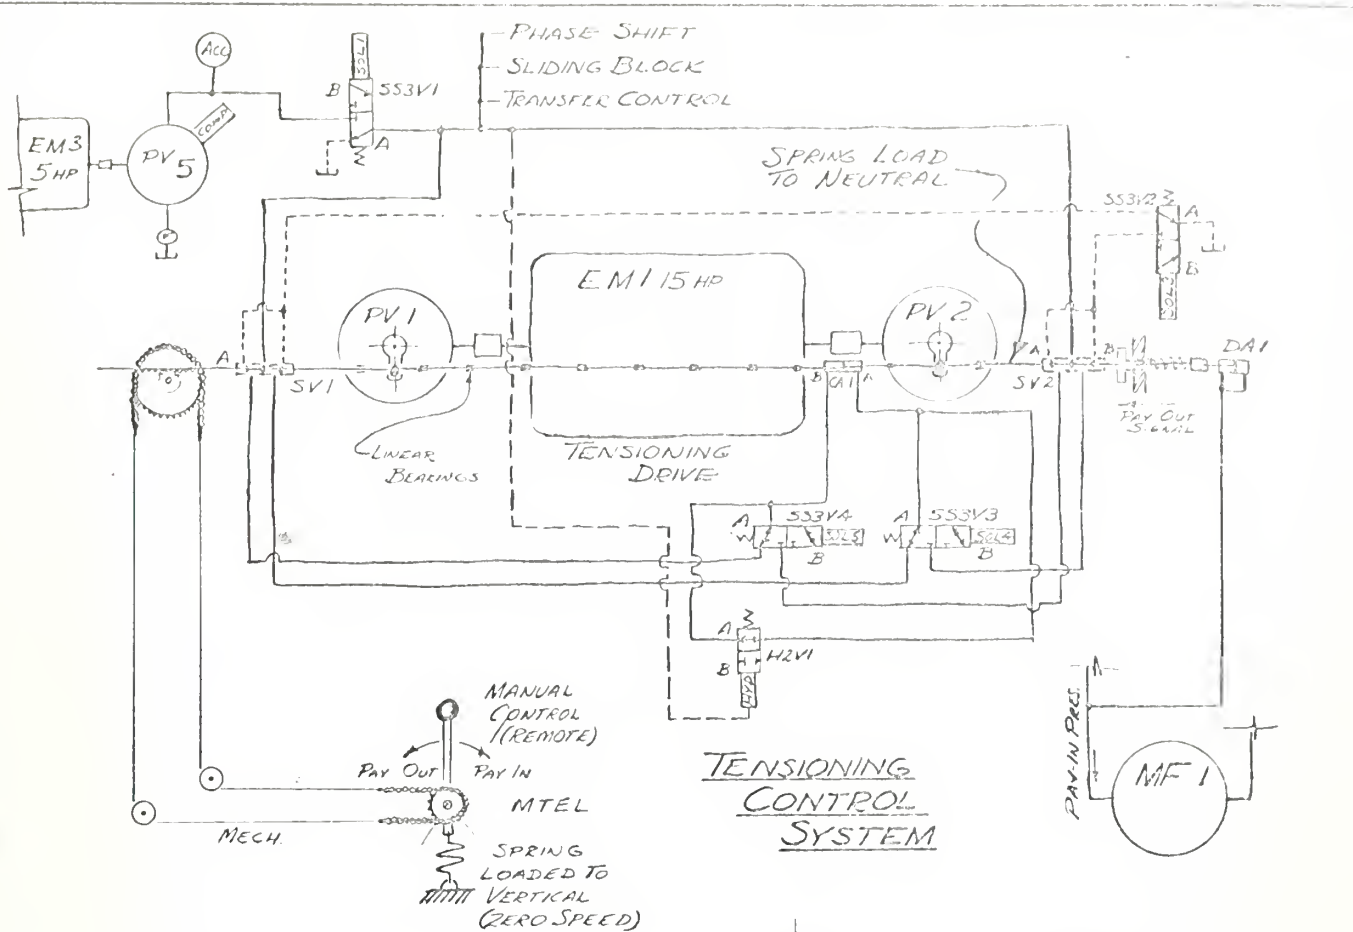 PHASE SHIFT
SLIDING BLOCK
TRANSFER CONTROL
ACC
SOL1
B
SS3V1
A
COMP
EM3
5 HP
PV 5
SPRING LOAD
TO NEUTRAL
SS3V2
A
B
SOL3
EM1 15 HP
PV 1
PV 2
A
SV1
B
CA1
A
A
SV2
B
DA1
PAY OUT
SIGNAL
LINEAR
BEARINGS
TENSIONING
DRIVE
A
SS3V4
B
A
SS3V3
SOL4
B
A
B
H2V1
HYD
MANUAL
CONTROL
(REMOTE)
PAY OUT
PAY IN
MTEL
MECH.
SPRING
LOADED TO
VERTICAL
(ZERO SPEED)
TENSIONING
CONTROL
SYSTEM
PAY-IN PRES.
MF 1